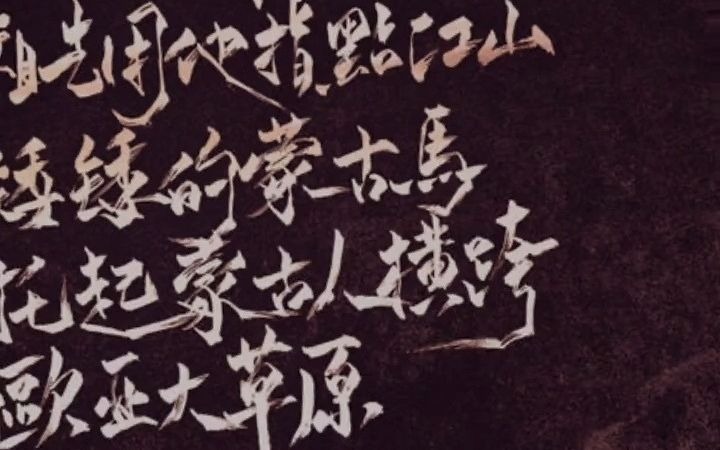 祖先用他指點江山
矮矮的蒙古馬
托起蒙古人橫跨
歐亞大草原